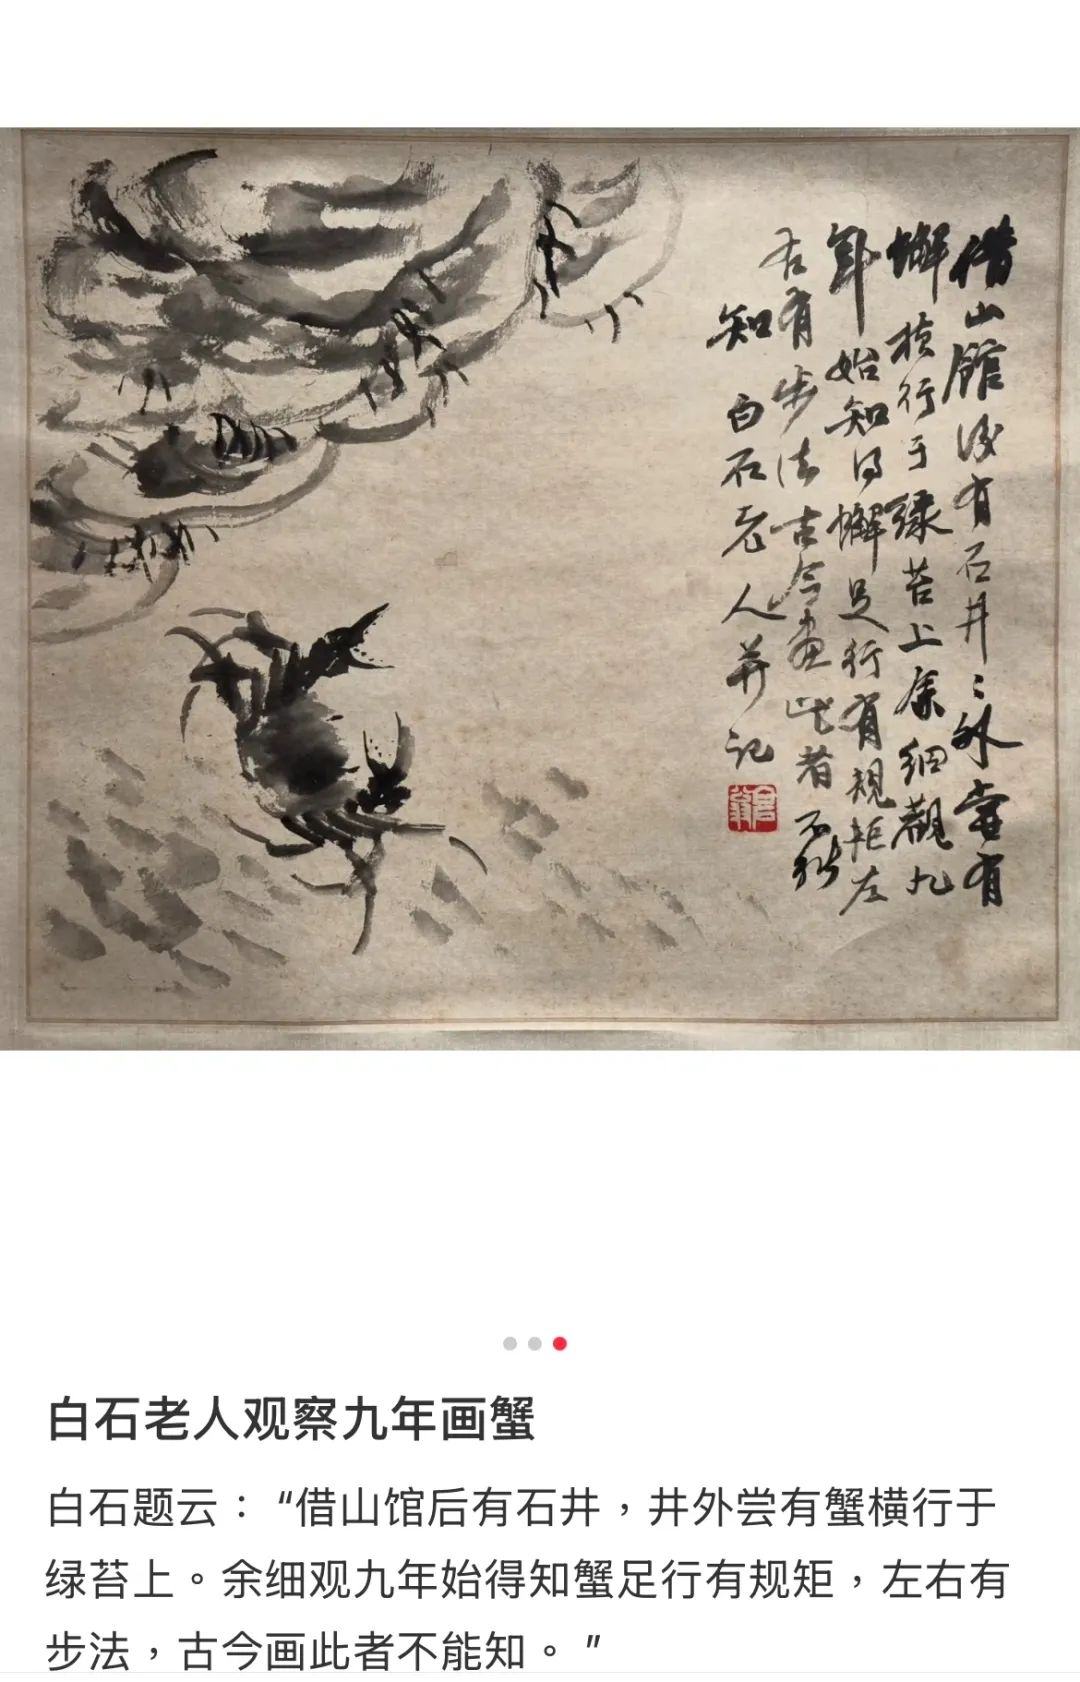 借山馆后有石井〻外尝有
蠏横行于绿苔上余细觀九
年始知得蠏足行有規矩左
右有步法古今畫此者不能
知 白石老人并记
白石老人观察九年画蟹
白石题云：“借山馆后有石井，井外尝有蟹横行于
绿苔上。余细观九年始得知蟹足行有规矩，左右有
步法，古今画此者不能知。”